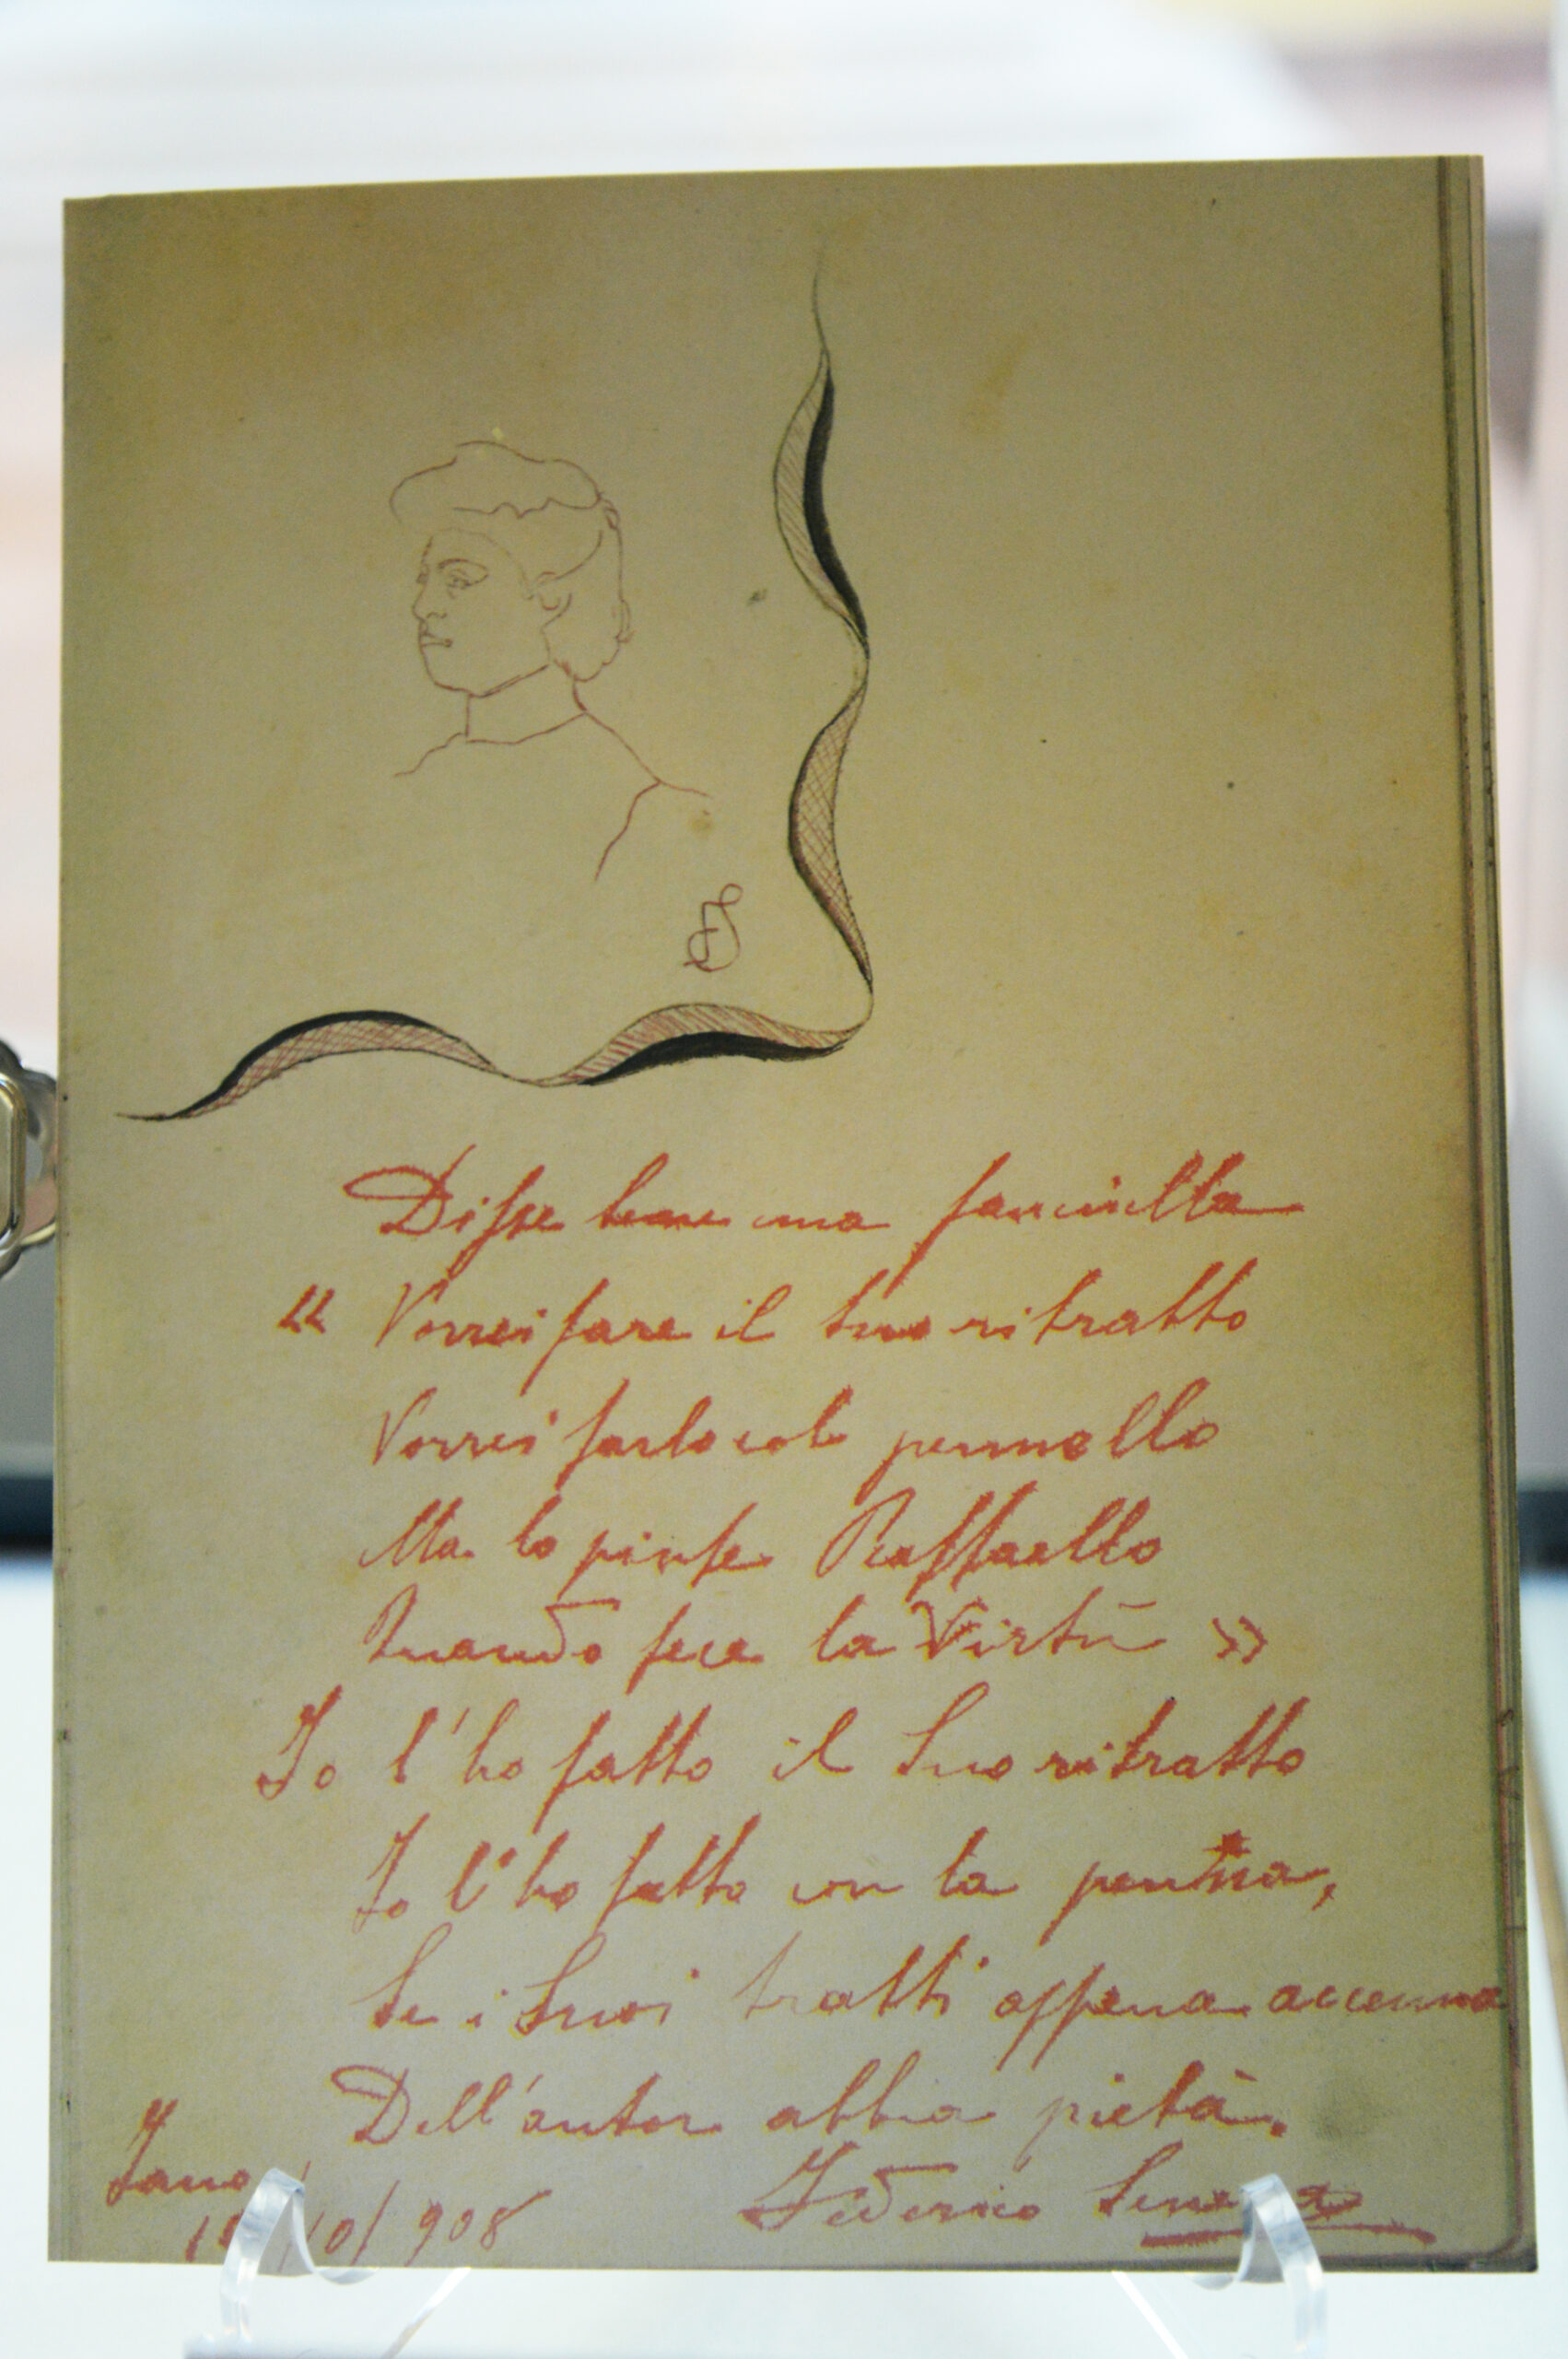 FS
Disse bene una fanciulla
“ Vorrei fare il tuo ritratto
Vorrei farlo col pennello
Ma lo pinse Raffaello
Quando fece la Virtù »
Io l'ho fatto il Suo ritratto
Io l'ho fatto con la penna,
Se i Suoi tratti appena accenna
Dell'autor abbia pietà.
Fano
/10/908
Federico Seneca